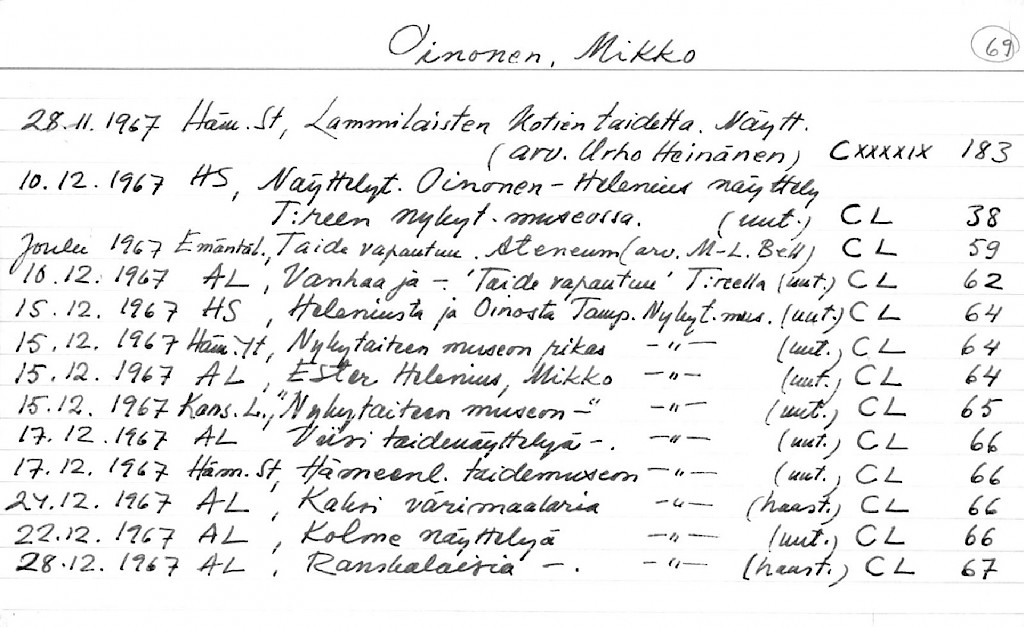 Oinonen, Mikko 69
28.11.1967 Häm.St, Lammilaisten Kotien taidetta. Näytt.
(arv. Urho Heinänen) CXXXXIX 183
10.12.1967 HS, Näyttelyt. Oinonen-Helenius näyttely
T:reen nykyt.museossa. (uut.) CL 38
Joulu 1967 Emäntäl., Taide vapautuu. Ateneum (arv. M-L. Bell) CL 59
10.12.1967 AL, Vanhaa ja -. 'Taide vapautuu' T:reella (uut.) CL 62
15.12.1967 HS, Heleniusta ja Oinosta Tamp. Nykyt.mus. (uut.) CL 64
15.12.1967 Häm.Yt, Nykytaiteen museon rikas -"- (uut.) CL 64
15.12.1967 AL, Ester Helenius, Mikko -"- (uut.) CL 64
15.12.1967 Kans.L., "Nykytaiteen museon -" -"- (uut.) CL 65
17.12.1967 AL Viisi taidenäyttelyä -. -"- (uut.) CL 66
17.12.1967 Häm.St, Hämeenl. taidemuseon -"- (uut.) CL 66
24.12.1967 AL, Kaksi värimaalaria -"- (haast.) CL 66
22.12.1967 AL, Kolme näyttelyä -"- (uut.) CL 66
28.12.1967 AL, Ranskalaisia -. -"- (haast.) CL 67